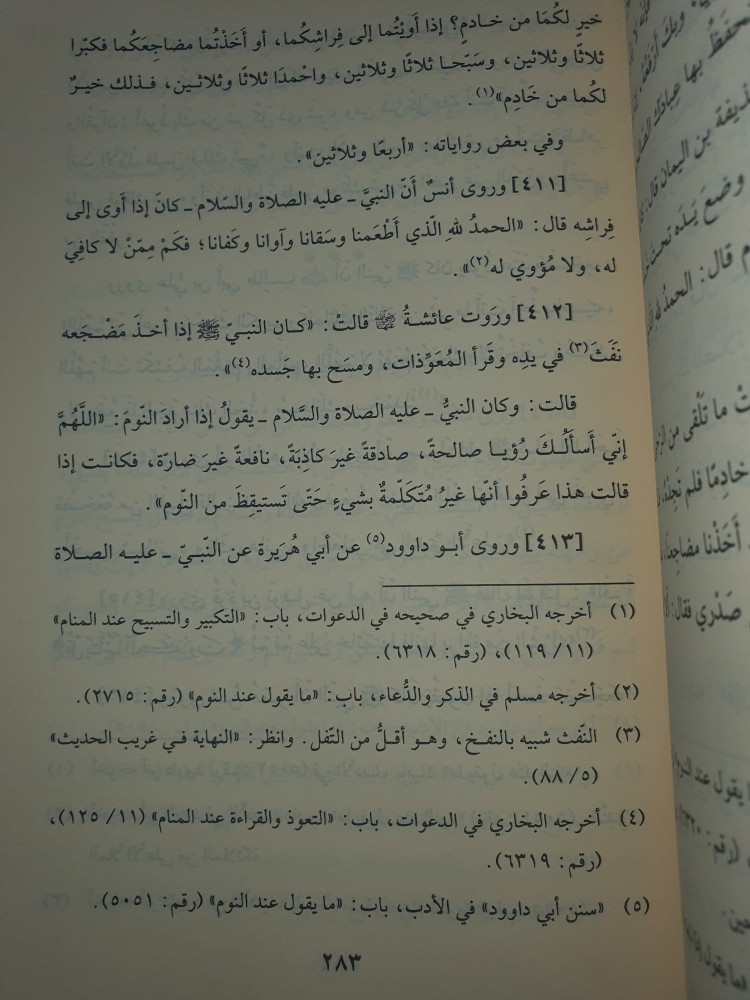 خيرٍ لكُمَا من خـادمٍ؟ إذا أوَيْتُما إلى فِراشِكُما، أو أخَذْتُما مضاجعَكُما فكبّرا
ثلاثًا وثلاثين، وسَبّحـا ثلاثًا وثلاثين، واحْمدَا ثلاثًا وثلاثـين، فـذلك خيـرٌ
لكُما من خَادِم»(١).
وفي بعض رواياته: «أربعًا وثلاثين».
[٤١١] وروى أنسٌ أنّ النبيَّ ـ عليه الصلاة والسّلام ـ كانَ إذا أوَى إلى
فِراشِه قال: «الحمدُ للهِ الّذي أَطْعَمنا وسَقانا وآوانا وكَفانا؛ فكَمْ مِمّنْ لا كافِيَ
له، ولا مُؤوي له(٢)».
[٤١٢] ورَوت عائشـةُ ﵂ قالتْ: «كـان النبيّ ﷺ إذا أخـذَ مَضْـجَعه
نَفَثَ(٣) في يدِه وقَرأ المُعَوِّذات، ومسَح بها جَسده(٤)».
قالت: وكان النبيُّ ـ عليه الصلاة والسَّلام ـ يقولُ إذا أرادَ النّومَ: «اللَّهمَّ
إنّي أَسـألُـكَ رُؤيـا صالحةً، صادقةً غيرَ كاذِبَةً، نافعةً غيرَ ضارّة، فكانـت إذا
قالت هذا عَرفُوا أنّها غيرُ مُتكَلّمةٌ بشيءٍ حَتّى تَستيقِظَ من النّوم».
[٤١٣] وروى أبـو داوود(٥) عن أبي هُرَيرة عن النّبـيّ ـ عليـه الصـلاة
(١) أخرجه البخاري في صحيحه في الدعوات، باب: «التكبير والتسبيح عند المنام»
(١١/ ١١٩)، (رقم: ٦٣١٨).
(٢) أخرجه مسلم في الذكر والدُّعاء، باب: «ما يقول عند النوم» (رقم: ٢٧١٥).
(٣) النّفث شبيه بالنفـخ، وهـو أقـلُّ من التّفل. وانظر: «النهاية فـي غريب الحديث»
(٥/ ٨٨).
(٤) أخرجه البخاري في الدعوات، باب: «التعوذ والقراءة عند المنام» (١١/ ١٢٥)،
(رقم: ٦٣١٩).
(٥) «سنن أبي داوود» في الأدب، باب: «ما يقول عند النوم» (رقم: ٥٠٥١).
٢٨٣